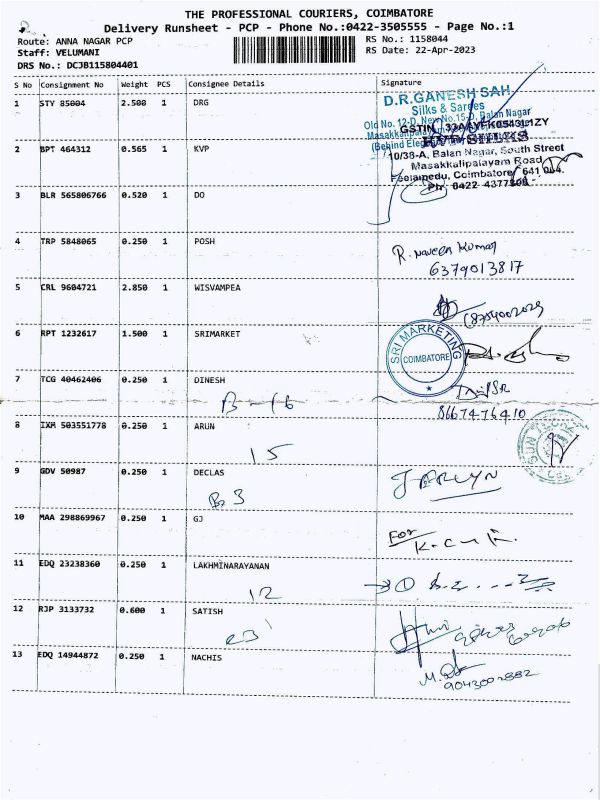 THE PROFESSIONAL COURIERS, COIMBATORE
Delivery Runsheet - PCP - Phone No.:0422-3505555 - Page No.:1
Route: ANNA NAGAR PCP RS No.: 1158044
Staff: VELUMANI RS Date: 22-Apr-2023
DRS No.: DCJB115804401
S No Consignment No Weight PCS Consignee Details Signature
1 STY 85004 2.500 1 DRG
D.R.GANESH SAH
Silks & Sarees
Old No. 12-D, New No.15-D, Balan Nagar
Masakkalipalayam
GSTIN 33AAYFK0543L1ZY
(Behind
2 BPT 464312 0.565 1 KVP
10/38-A, Balan Nagar, South Street
Masakkalipalayam Road
Peelamedu, Coimbatore 641 004.
Ph 0422 4377
3 BLR 565806766 0.520 1 DO
4 TRP 5848065 0.250 1 POSH
R. Naveen Kumar
6379013817
5 CRL 9604721 2.850 1 WISVAMPEA
6 RPT 1232617 1.500 1 SRIMARKET
SRI MARKETING
COIMBATORE
7 TCG 40462406 0.250 1 DINESH
B-16
8667476410
8 IXM 503551778 0.250 1 ARUN
15
9 GDV 50987 0.250 1 DECLAS
B3
10 MAA 298869967 0.250 1 GJ
For
11 EDQ 23238360 0.250 1 LAKHMINARAYANAN
12
12 RJP 3133732 0.600 1 SATISH
23
13 EDQ 14944872 0.250 1 NACHIS
9043002882